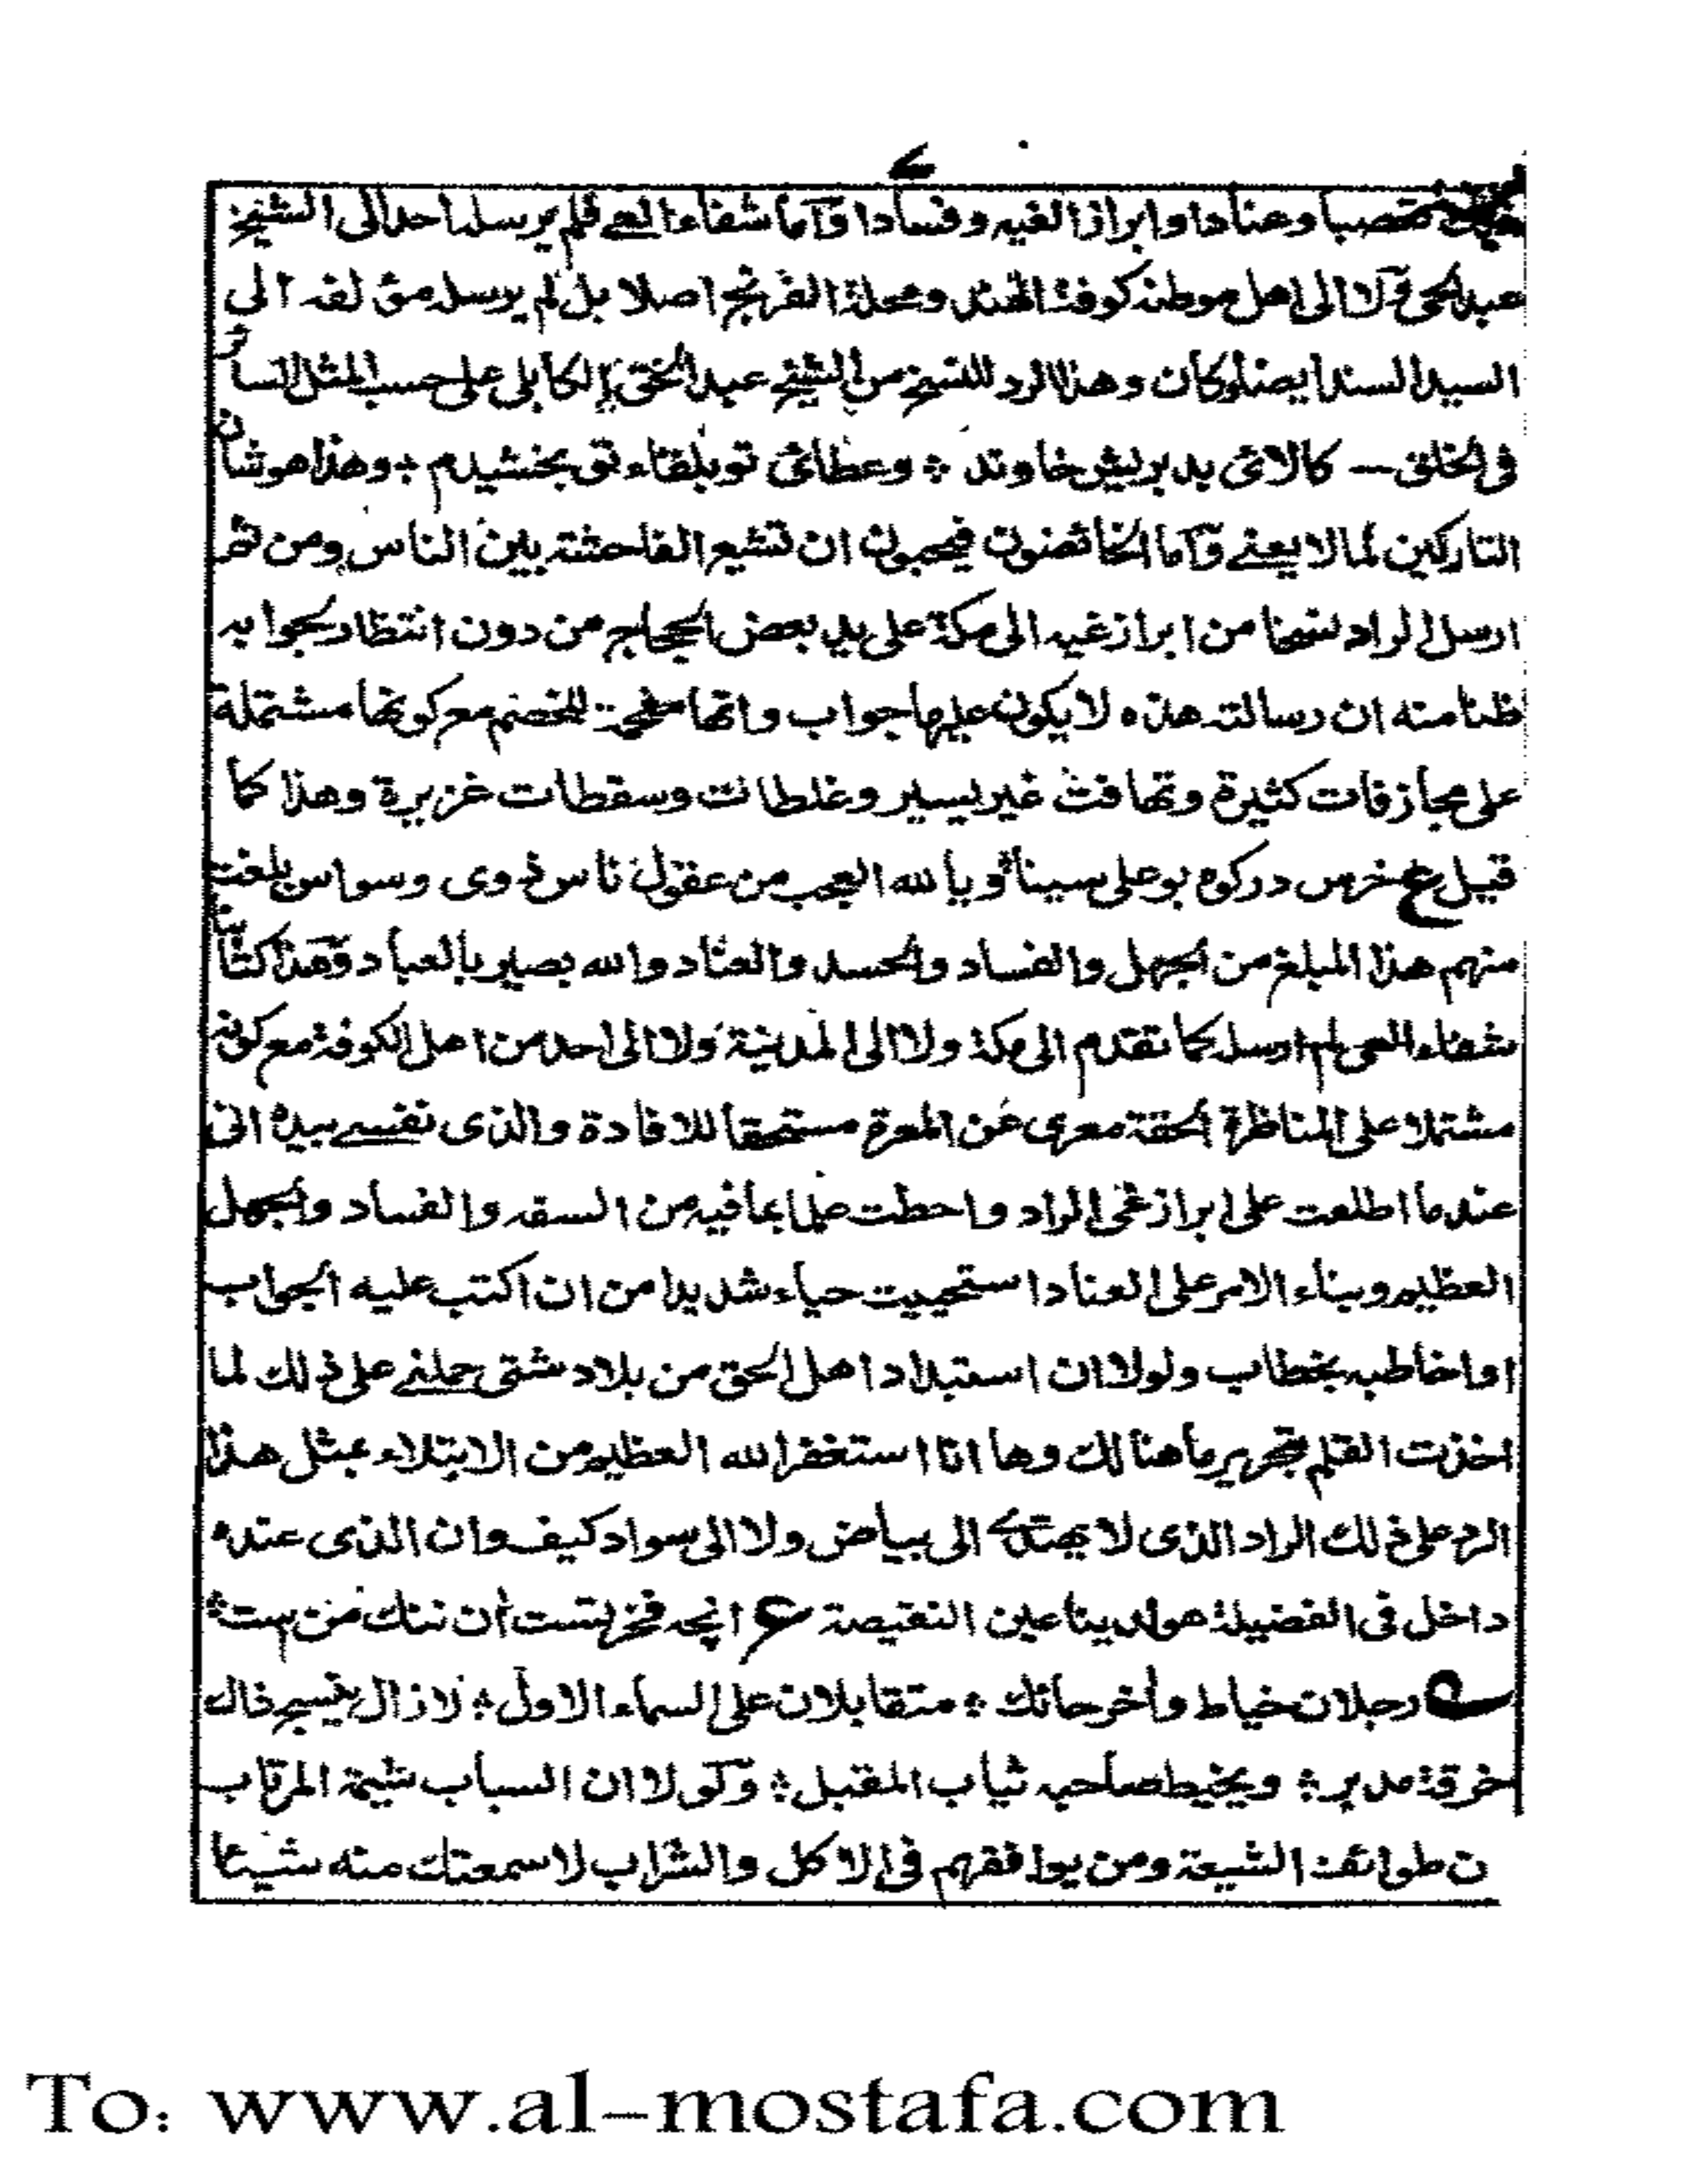 تعصبا وعنادا وابرازا لغيه وفسادا وآما شفاء العے فلم يرسله احد الى الشيخ
عبد الحى وّلا الى اهل موطنه كوفة الهند ومحلة الفرنج اصلا بل لم يرسله مؤلفه الى
السيد السند ايضا وكان وهذا الرد للشيخ من الشيخ عبد الحق الكابلى على حسب المثل السائر
فى الخلق — كالائى بد بريش خاوند ؞ وعطائى تو بلقاء تو بخشيدم ؞ وهذا هو شان
التاركين لما لا يعنے وّآما الخائضون فيحبون ان تشيع الفاحشة بين الناس ومن ثم
ارسل الراد نسخا من ابراز غيه الى مكة على يد بعض الحجاج من دون انتظار لجوابه
ظنا منه ان رسالته هذه لا يكون عليها جواب وانها مفحمة للخصم مع كونها مشتملة
على مجازفات كثيرة وتهافت غير يسير وغلطات وسقطات غزيرة وهذا كما
قيل ع خرس در كوه بو على سينا ؤ يا لله العجب من عقول ناس ذوى وسواس بلغت
منهم هذا المبلغ من الجهل والفساد والحسد والعناد والله بصير بالعباد وّهَذا كتابنا
شفاء العى لم ارسله كما تقدم الى مكة ولا الى المدينة ولا الى احد من اهل الكوفة مع كونه
مشتملا على المناظرة الحقة معرى عن المعرة مستحقا للافادة والذى نفسے بيده انى
عندما اطلعت على ابراز غى الراد واحطت علما بما فيه من السفه والفساد والجهل
العظيم وبناء الامر على العناد استحييت حياء شديدا من ان اكتب عليه الجواب
او اخاطبه بخطاب ولولا ان استبداد اهل الحق من بلاد شتى حملنے على ذلك لما
اخذت القلم بتحرير ما هنالك وها انا استغفر الله العظيم من الابتلاء بمثل هذا
الرد على ذلك الراد الذى لا يهتدے الى بياض ولا الى سواد كيف وان الذى عنده
داخل فى الفضيلة هو لدينا عين النقيصة ع انچه فخر تست آن ننك من ست ؞
رجلان خياط وآخر حائك ؞ متقابلان على السماء الاول ؞ لا زال ينسج ذاك
خرقة مدبر ؞ ويخيط صاحبه ثياب المقبل ؞ وّلَولا ان السباب شيمة المرتاب
ن طوائف الشيعة ومن يوافقهم فى الاكل والشراب لاسمعتك منه شيئا
To: www.al-mostafa.com